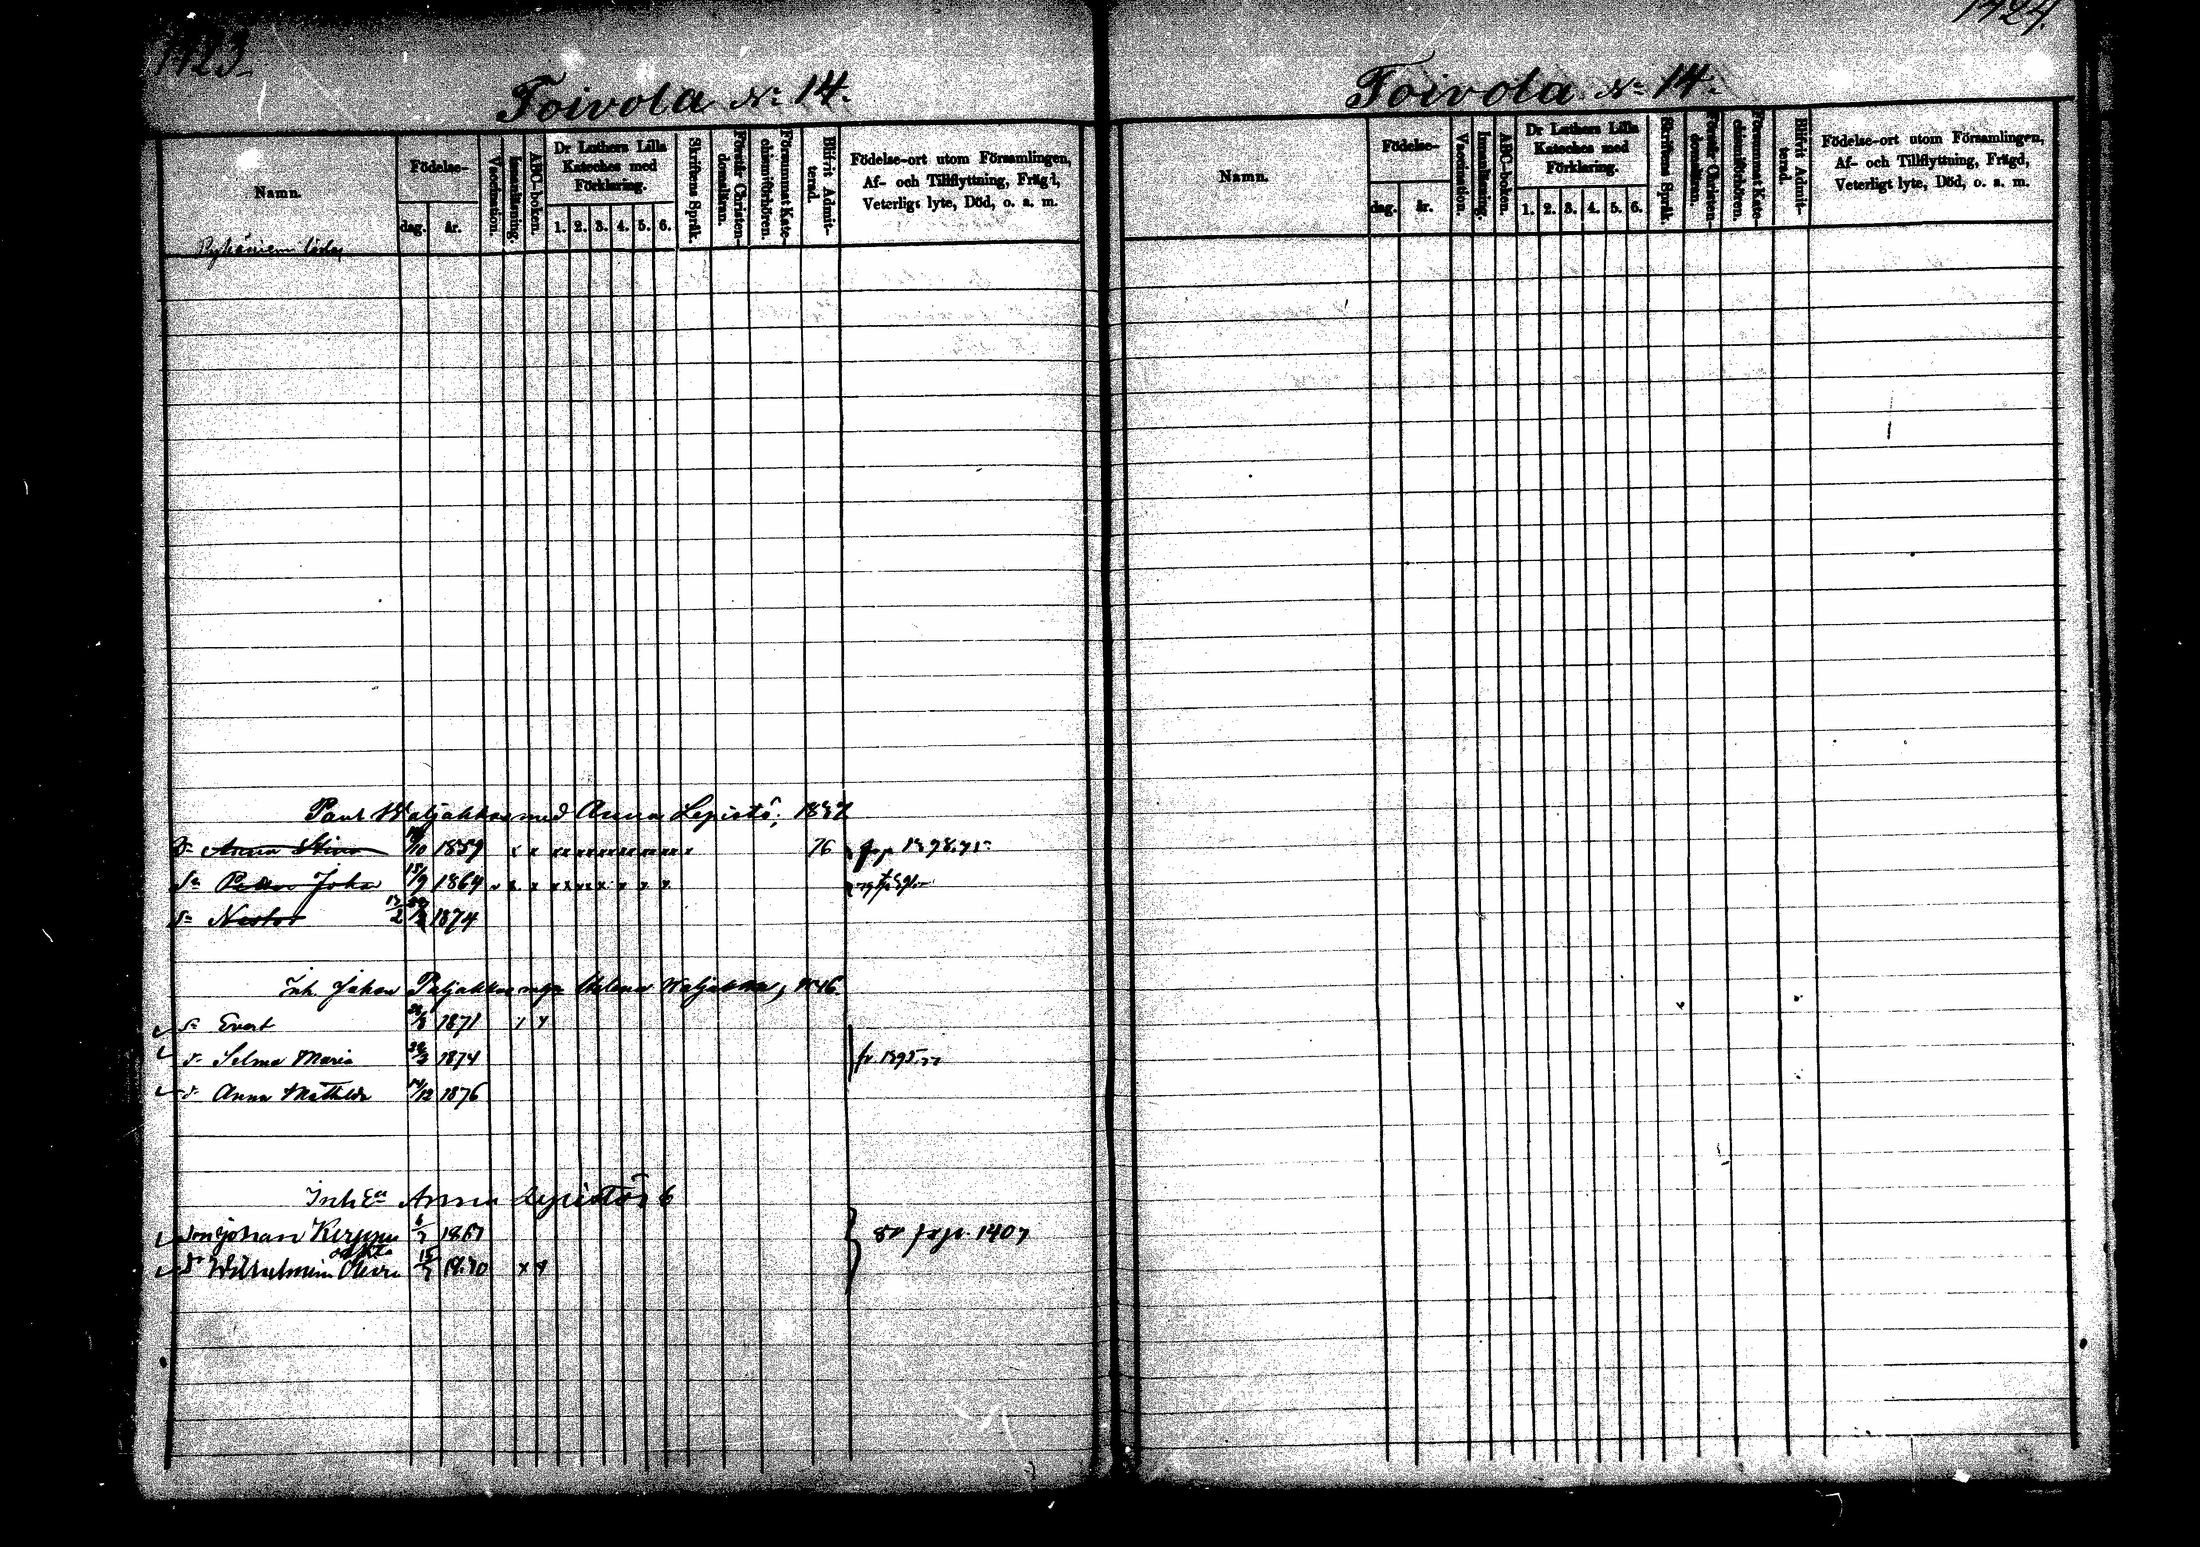 1423
Toivola № 14.
Namn.
Födelse-
dag.
år.
Vaccination.
Innanläsning.
ABC-boken.
Dr Luthers Lilla
Kateches med
Förklaring.
1. 2. 3. 4. 5. 6.
Skriftens Språk.
Förstår Christen-
domsläran.
Försummat Kate-
chismiförhören.
Blifvit Admit-
terad.
Födelse-ort utom Församlingen,
Af- och Tillflyttning, Frägd,
Veterligt lyte, Död, o. s. m.
Paul Waljakka med Anna Lepistö, 1837
Dr Anna Stina 10 1859 x x 76
Sn Petter Johan 15/9 1864
Sn Nestor 1874
Inh. Johan Paljakka Helena Waljakka, 1846.
Sn Evert 1871
dr Selma Maria 1874 fr. 1395
dr Anna Mathilda 14/12 1876
Anna Lepistös b
Son Johan 1867 80 pag. 1407
dr Wilhelmina 15/7 1870 x x
1424.
Toivola № 14.
Namn.
Födelse-
dag.
år.
Vaccination.
Innanläsning.
ABC-boken.
Dr Luthers Lilla
Kateches med
Förklaring.
1. 2. 3. 4. 5. 6.
Skriftens Språk.
Förstår Christen-
domsläran.
Försummat Kate-
chismiförhören.
Blifvit Admit-
terad.
Födelse-ort utom Församlingen,
Af- och Tillflyttning, Frägd,
Veterligt lyte, Död, o. s. m.